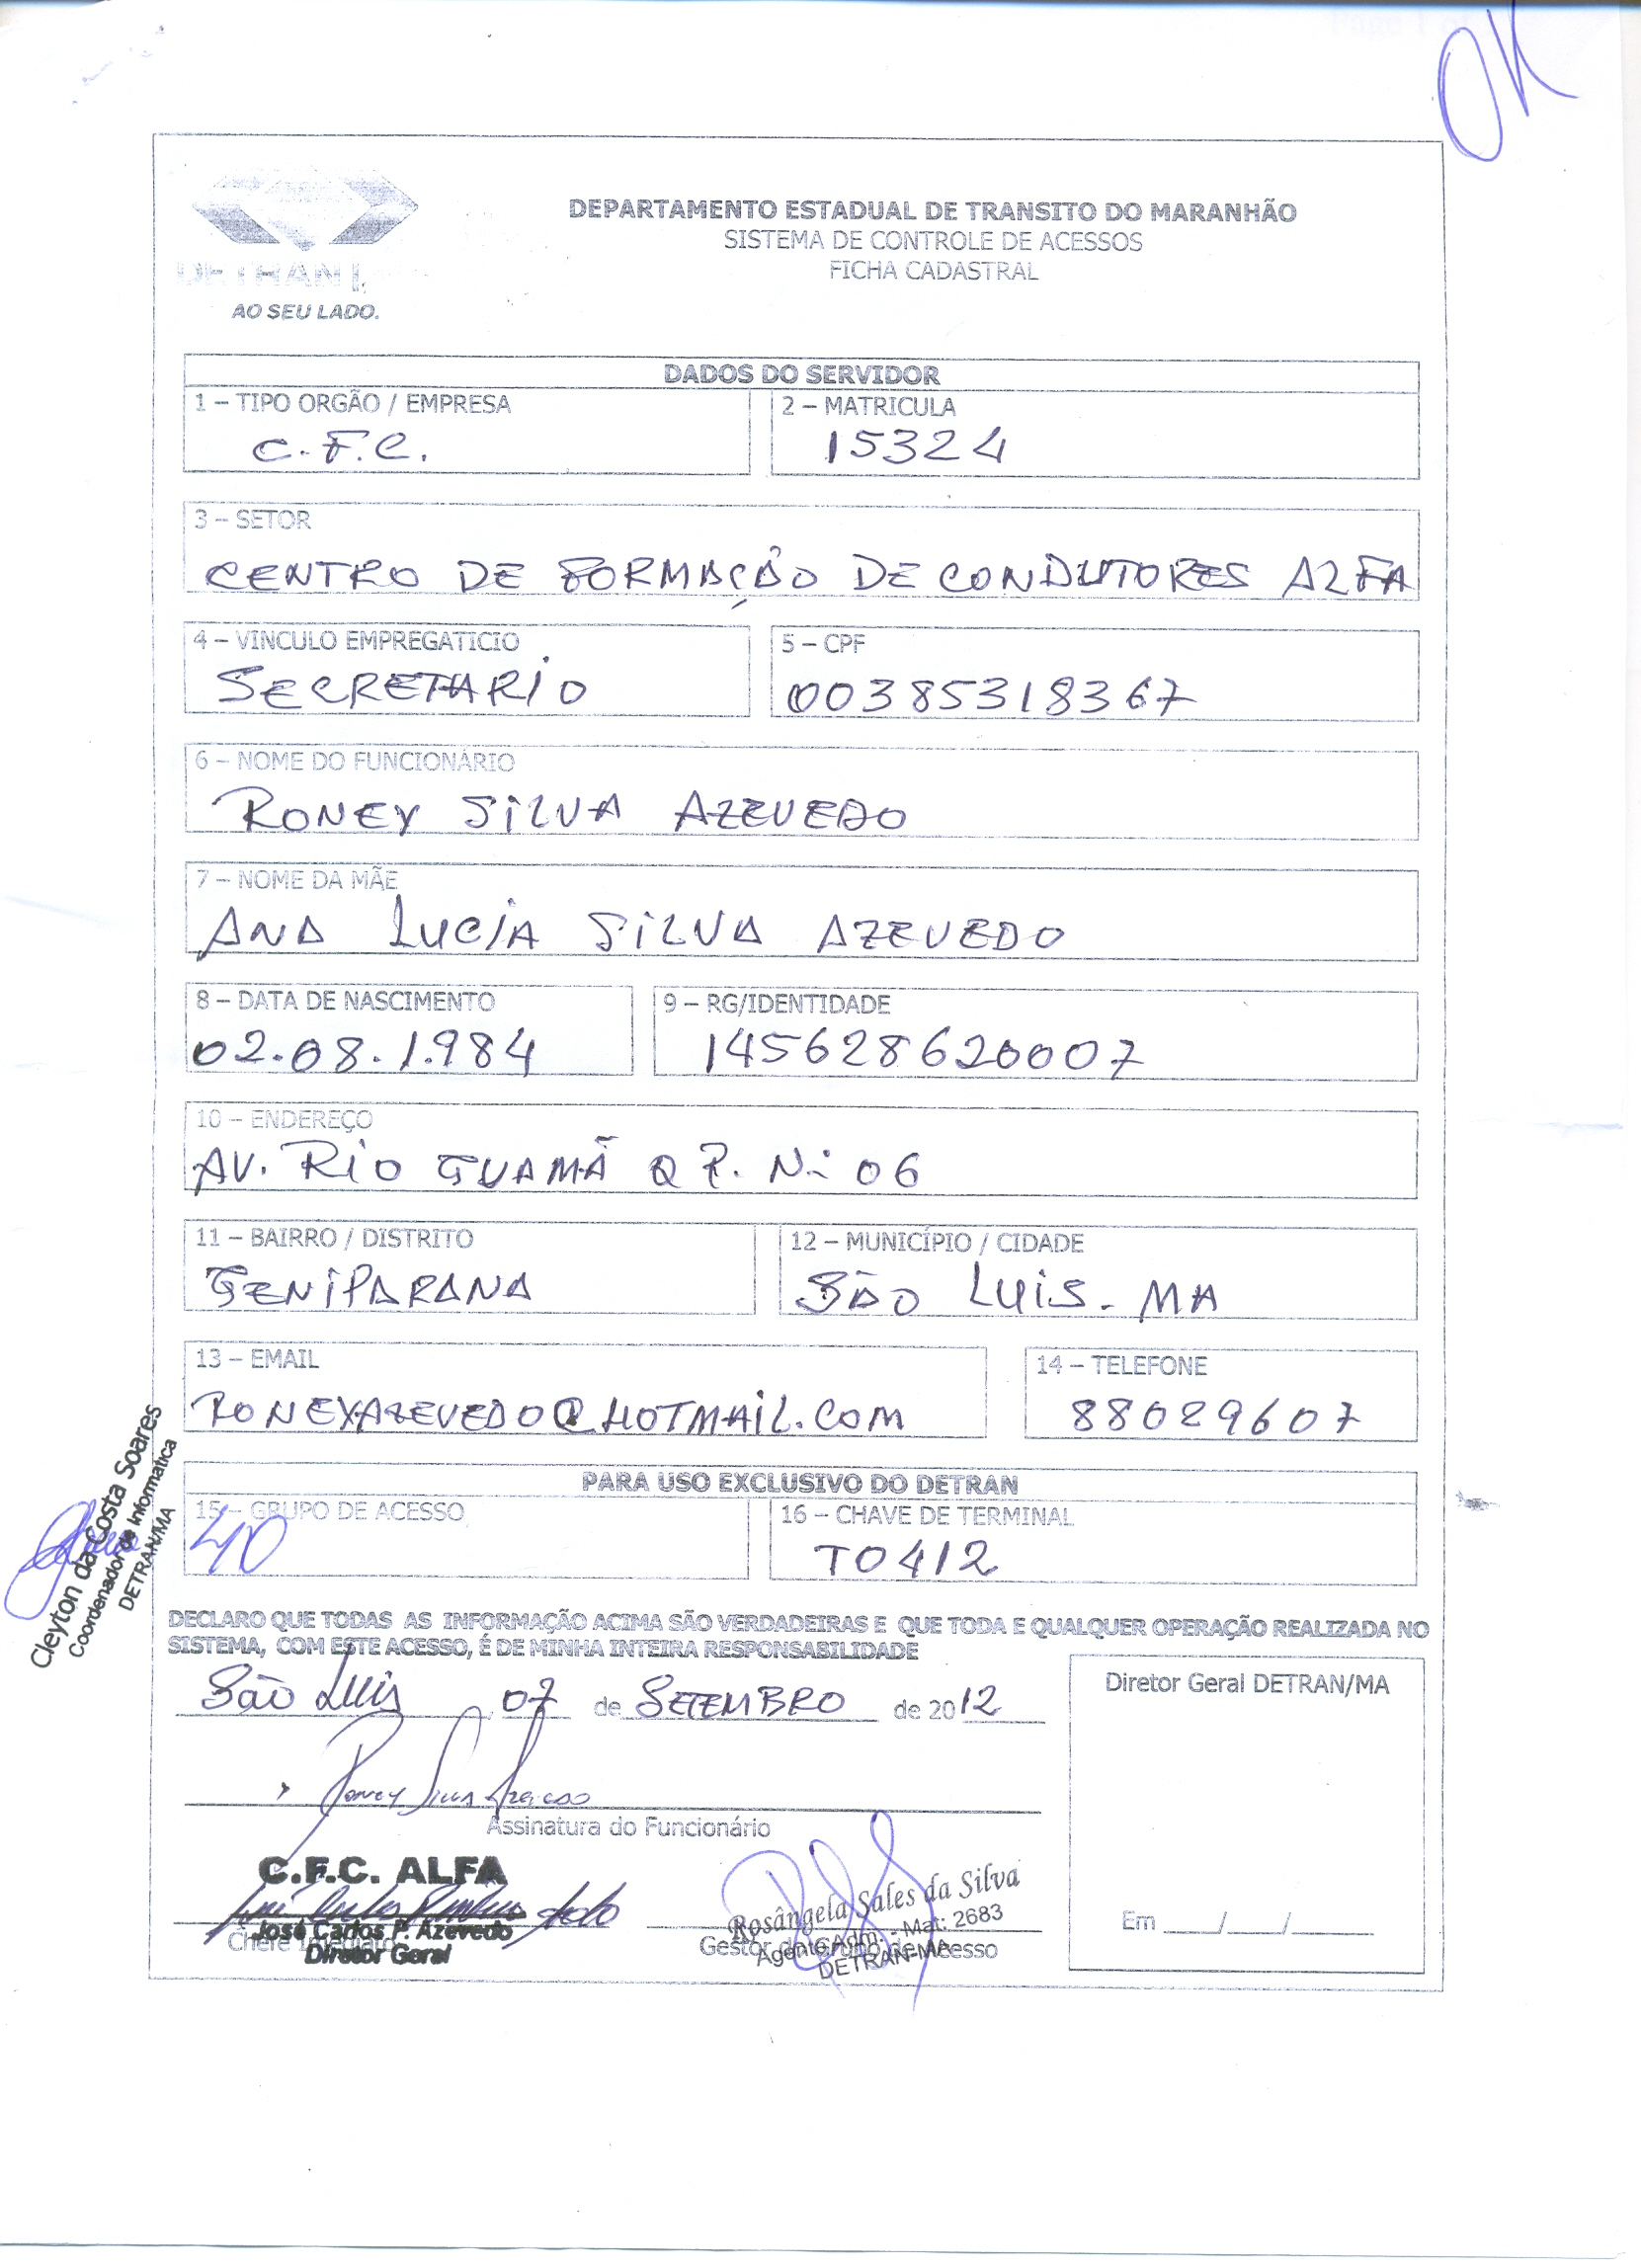 OK
DETRAN
AO SEU LADO.
DEPARTAMENTO ESTADUAL DE TRANSITO DO MARANHÃO
SISTEMA DE CONTROLE DE ACESSOS
FICHA CADASTRAL
DADOS DO SERVIDOR
1 – TIPO ORGÃO / EMPRESA
C.F.C.
2 – MATRICULA
15324
3 – SETOR
CENTRO DE FORMAÇÃO DE CONDUTORES ALFA
4 – VINCULO EMPREGATICIO
SECRETARIO
5 – CPF
00385318367
6 – NOME DO FUNCIONÁRIO
RONEY SILVA AZEVEDO
7 – NOME DA MÃE
ANA LUCIA SILVA AZEVEDO
8 – DATA DE NASCIMENTO
02.08.1.984
9 – RG/IDENTIDADE
145628620007
10 – ENDEREÇO
AV. RIO GUAMÃ Q 7. N.: 06
11 – BAIRRO / DISTRITO
GENIPARANA
12 – MUNICÍPIO / CIDADE
SÃO LUIS - MA
13 – EMAIL
RONEYAZEVEDO@HOTMAIL.COM
14 – TELEFONE
88029607
PARA USO EXCLUSIVO DO DETRAN
15 – GRUPO DE ACESSO
40
16 – CHAVE DE TERMINAL
T0412
Cleyton da Costa Soares
Coordenador de Informatica
DETRAN/MA
DECLARO QUE TODAS AS INFORMAÇÃO ACIMA SÃO VERDADEIRAS E QUE TODA E QUALQUER OPERAÇÃO REALIZADA NO
SISTEMA, COM ESTE ACESSO, É DE MINHA INTEIRA RESPONSABILIDADE
São Luis, 07 de SETEMBRO de 2012
Roney Silva Azevedo
Assinatura do Funcionário
C.F.C. ALFA
José Carlos P. Azevedo
Chefe Imediato
Diretor Geral
Rosângela Sales da Silva
Agente Adm. - Mat: 2683
DETRAN-MA
Gestor do Grupo de Acesso
Diretor Geral DETRAN/MA
Em ____/____/______